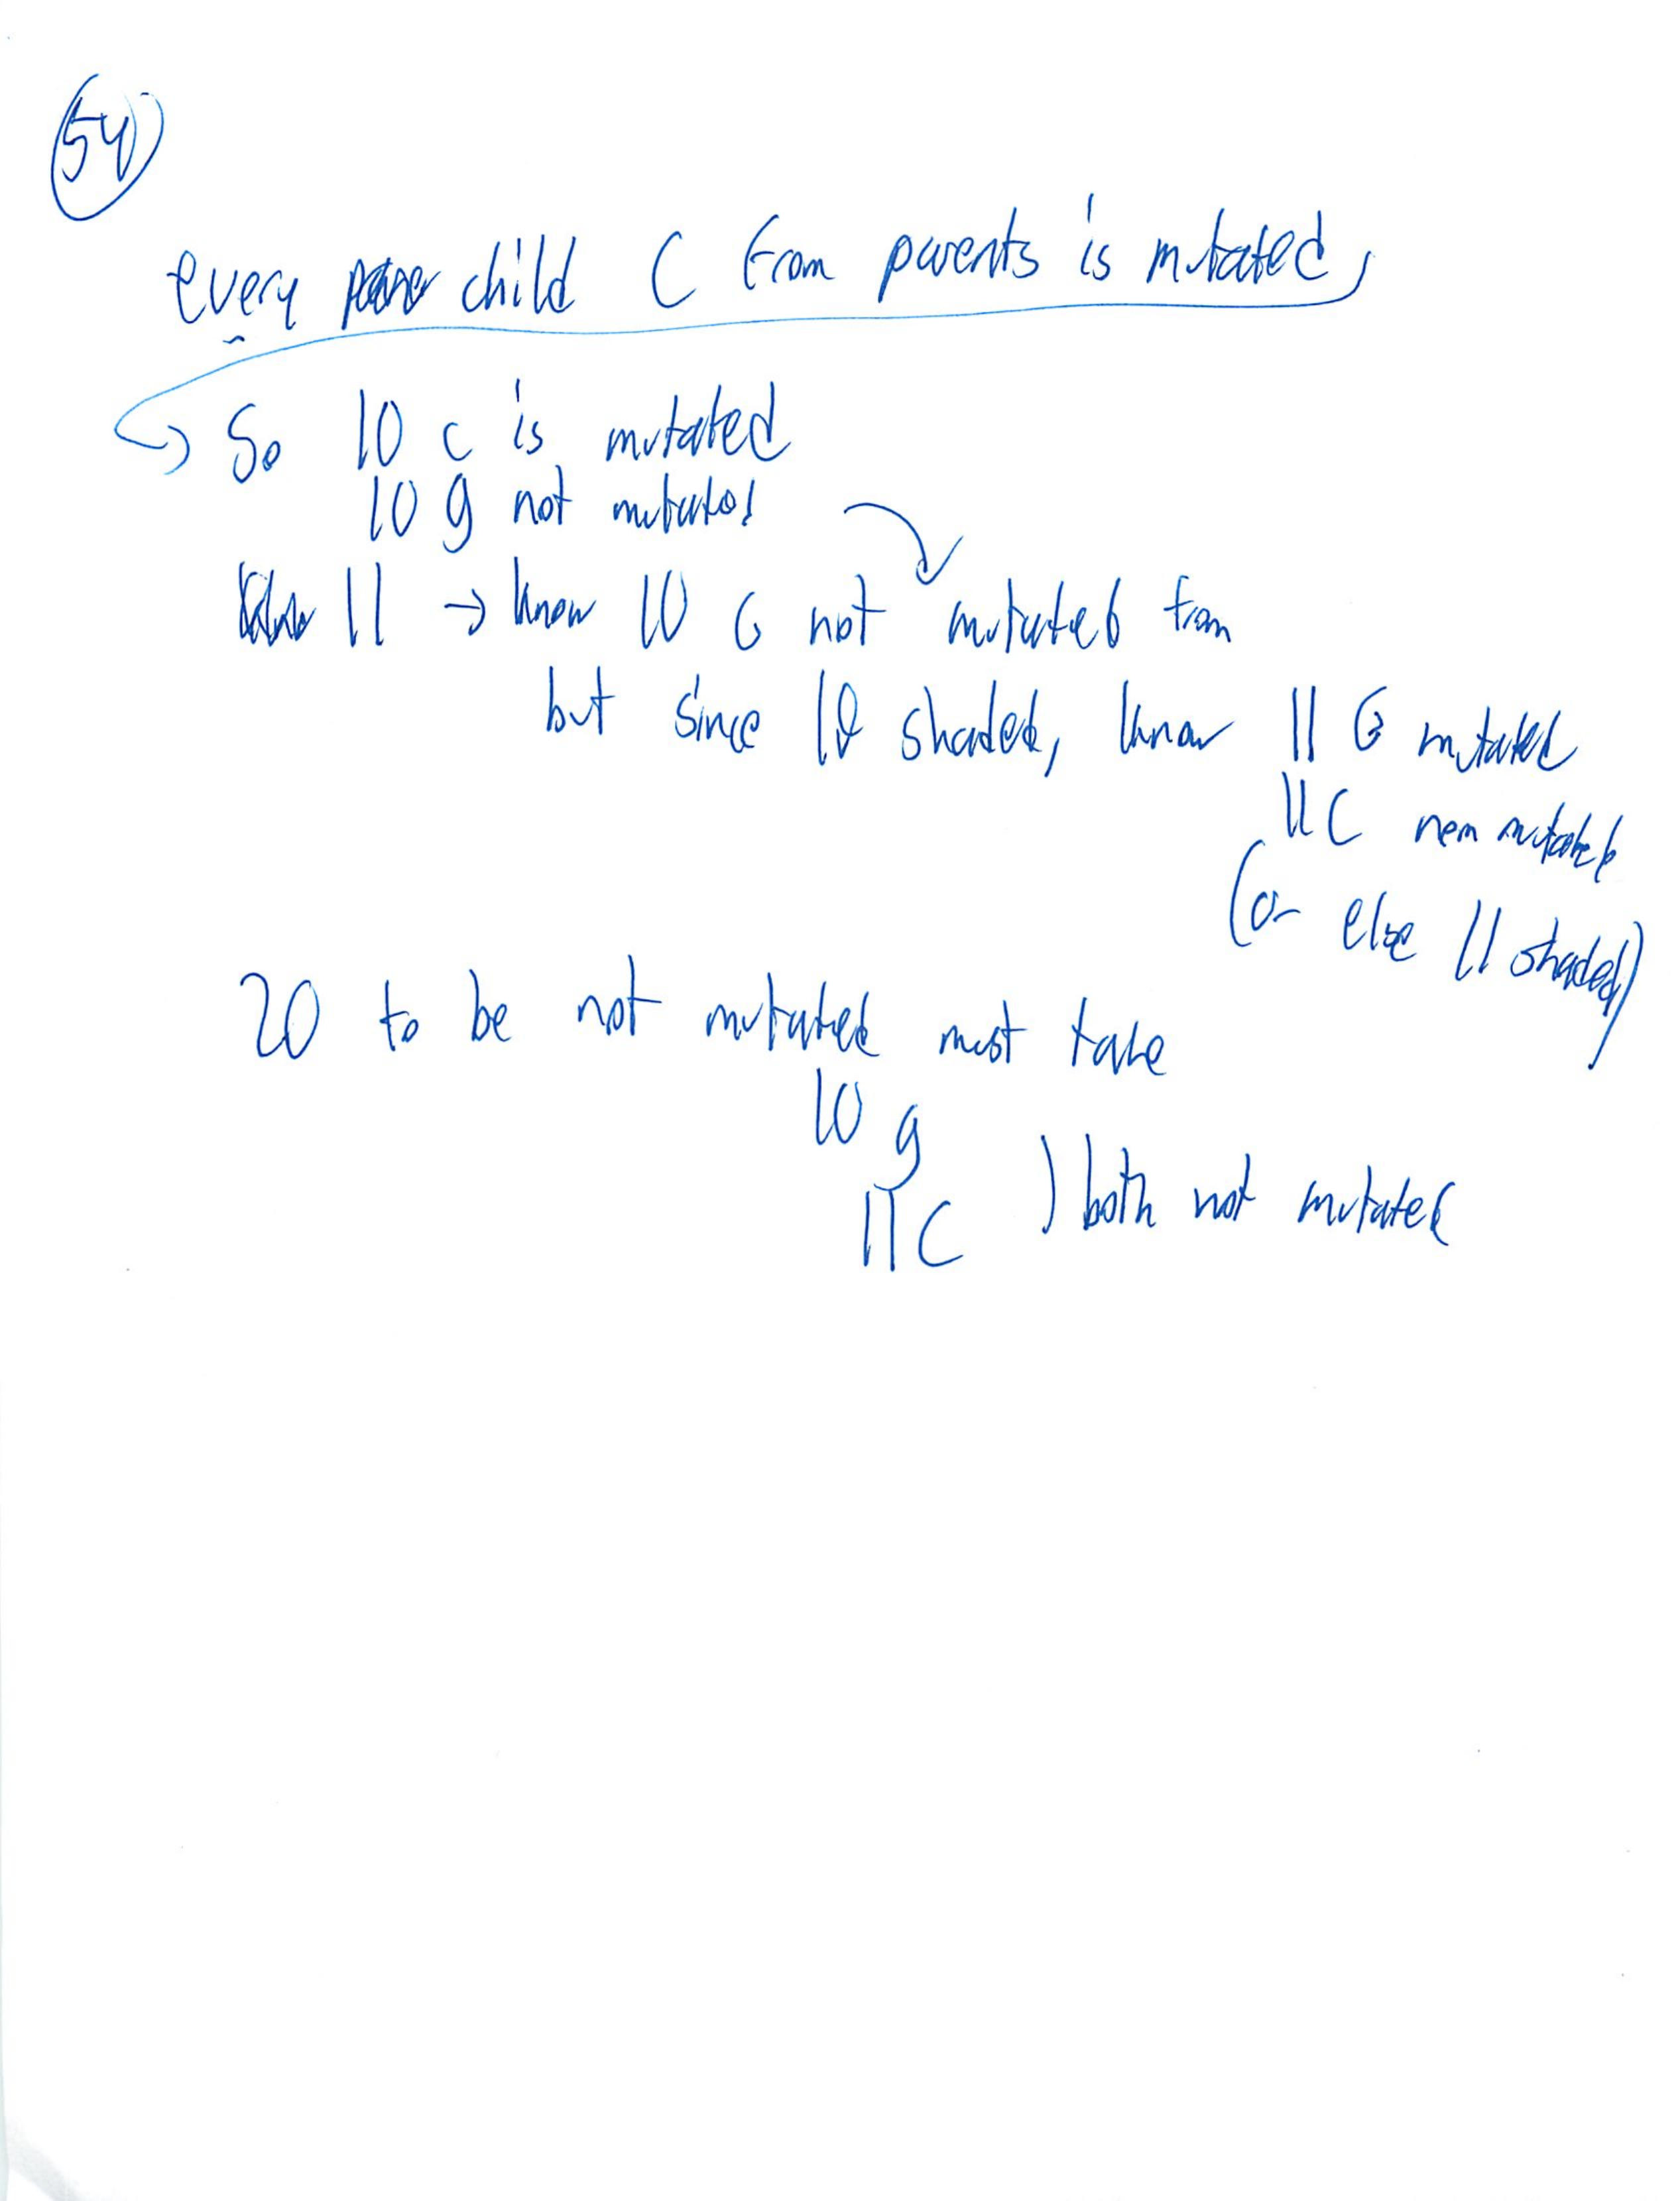 54
every child C from parents is mutated,
So 10 c is mutated
10 g not mutated
11 → know 10 G not mutated from
but since 10 shaded, know 11 G mutated
11 C non mutated
(or else 11 shaded)
20 to be not mutated must take
10 g
11 C ) both not mutated